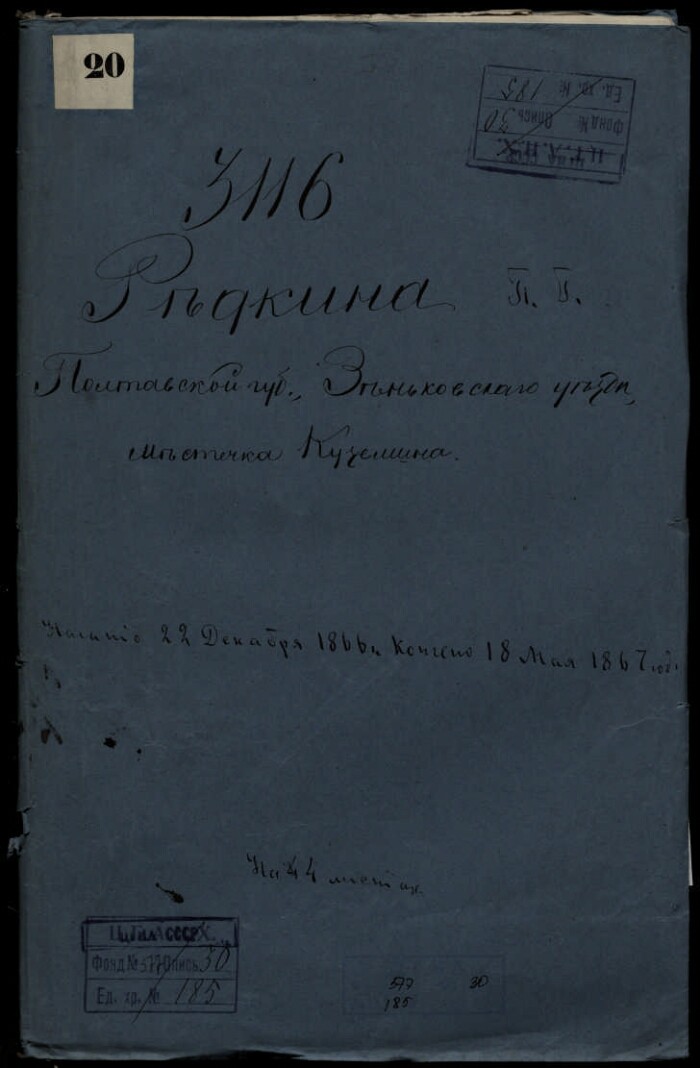 20
Ед. хр. № 185
Фонд № Опись 30
3116
Рѣдкина П. Г.
Полтавской губ., Зѣньковскаго уѣзда,
мѣстечка Куземина.
22 Декабря 1866 г. Кончено 18 Мая 1867 года.
На 44 листах
ЦГИА СССР
Фонд № 577 Опись 30
Ед. хр. № 185
577 30
185